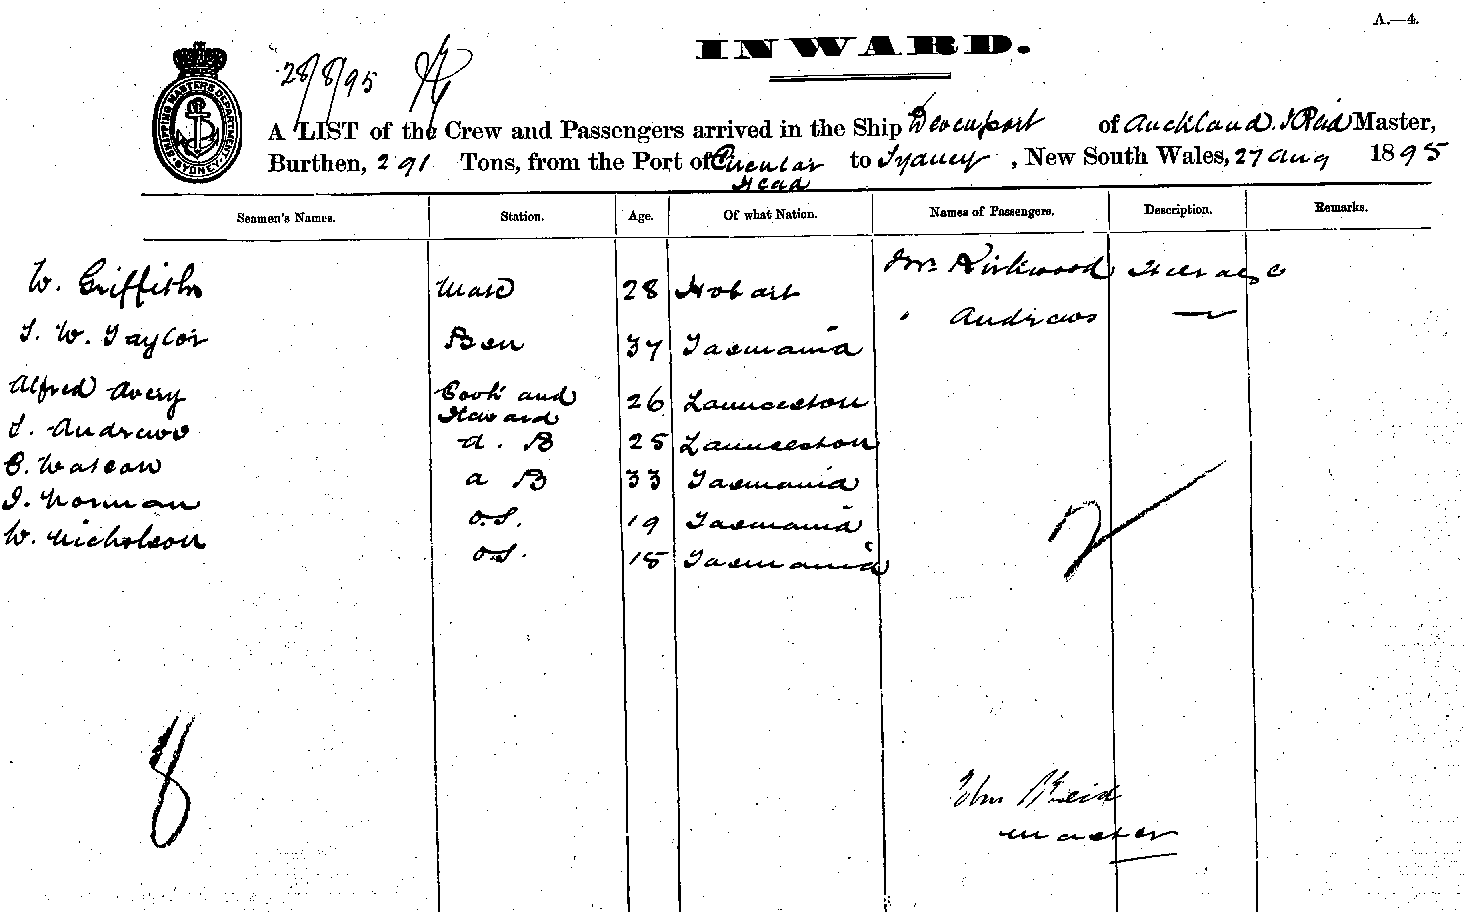 A.—4.
INWARD.
28/8/95
SHIPPING MASTERS DEPARTMENT SYDNEY
A LIST of the Crew and Passengers arrived in the Ship Devenport of Auckland. J Reid Master,
Burthen, 291 Tons, from the Port of Circular Head to Sydney, New South Wales, 27 Aug 1895
Seamen's Names. Station. Age. Of what Nation. Names of Passengers. Description. Remarks.
W. Griffiths Mate 28 Hobart Mr Kirkwood Steerage
T. W. Taylor Bsn 37 Tasmania " Andrews —
Alfred Avery Cook and Steward 26 Launceston
T. Andrews A. B 25 Launceston
C. Watson A B 33 Tasmania
J. Norman O.S. 19 Tasmania
W. Nicholson O.S. 18 Tasmania
2
8
Wm Reid
Master